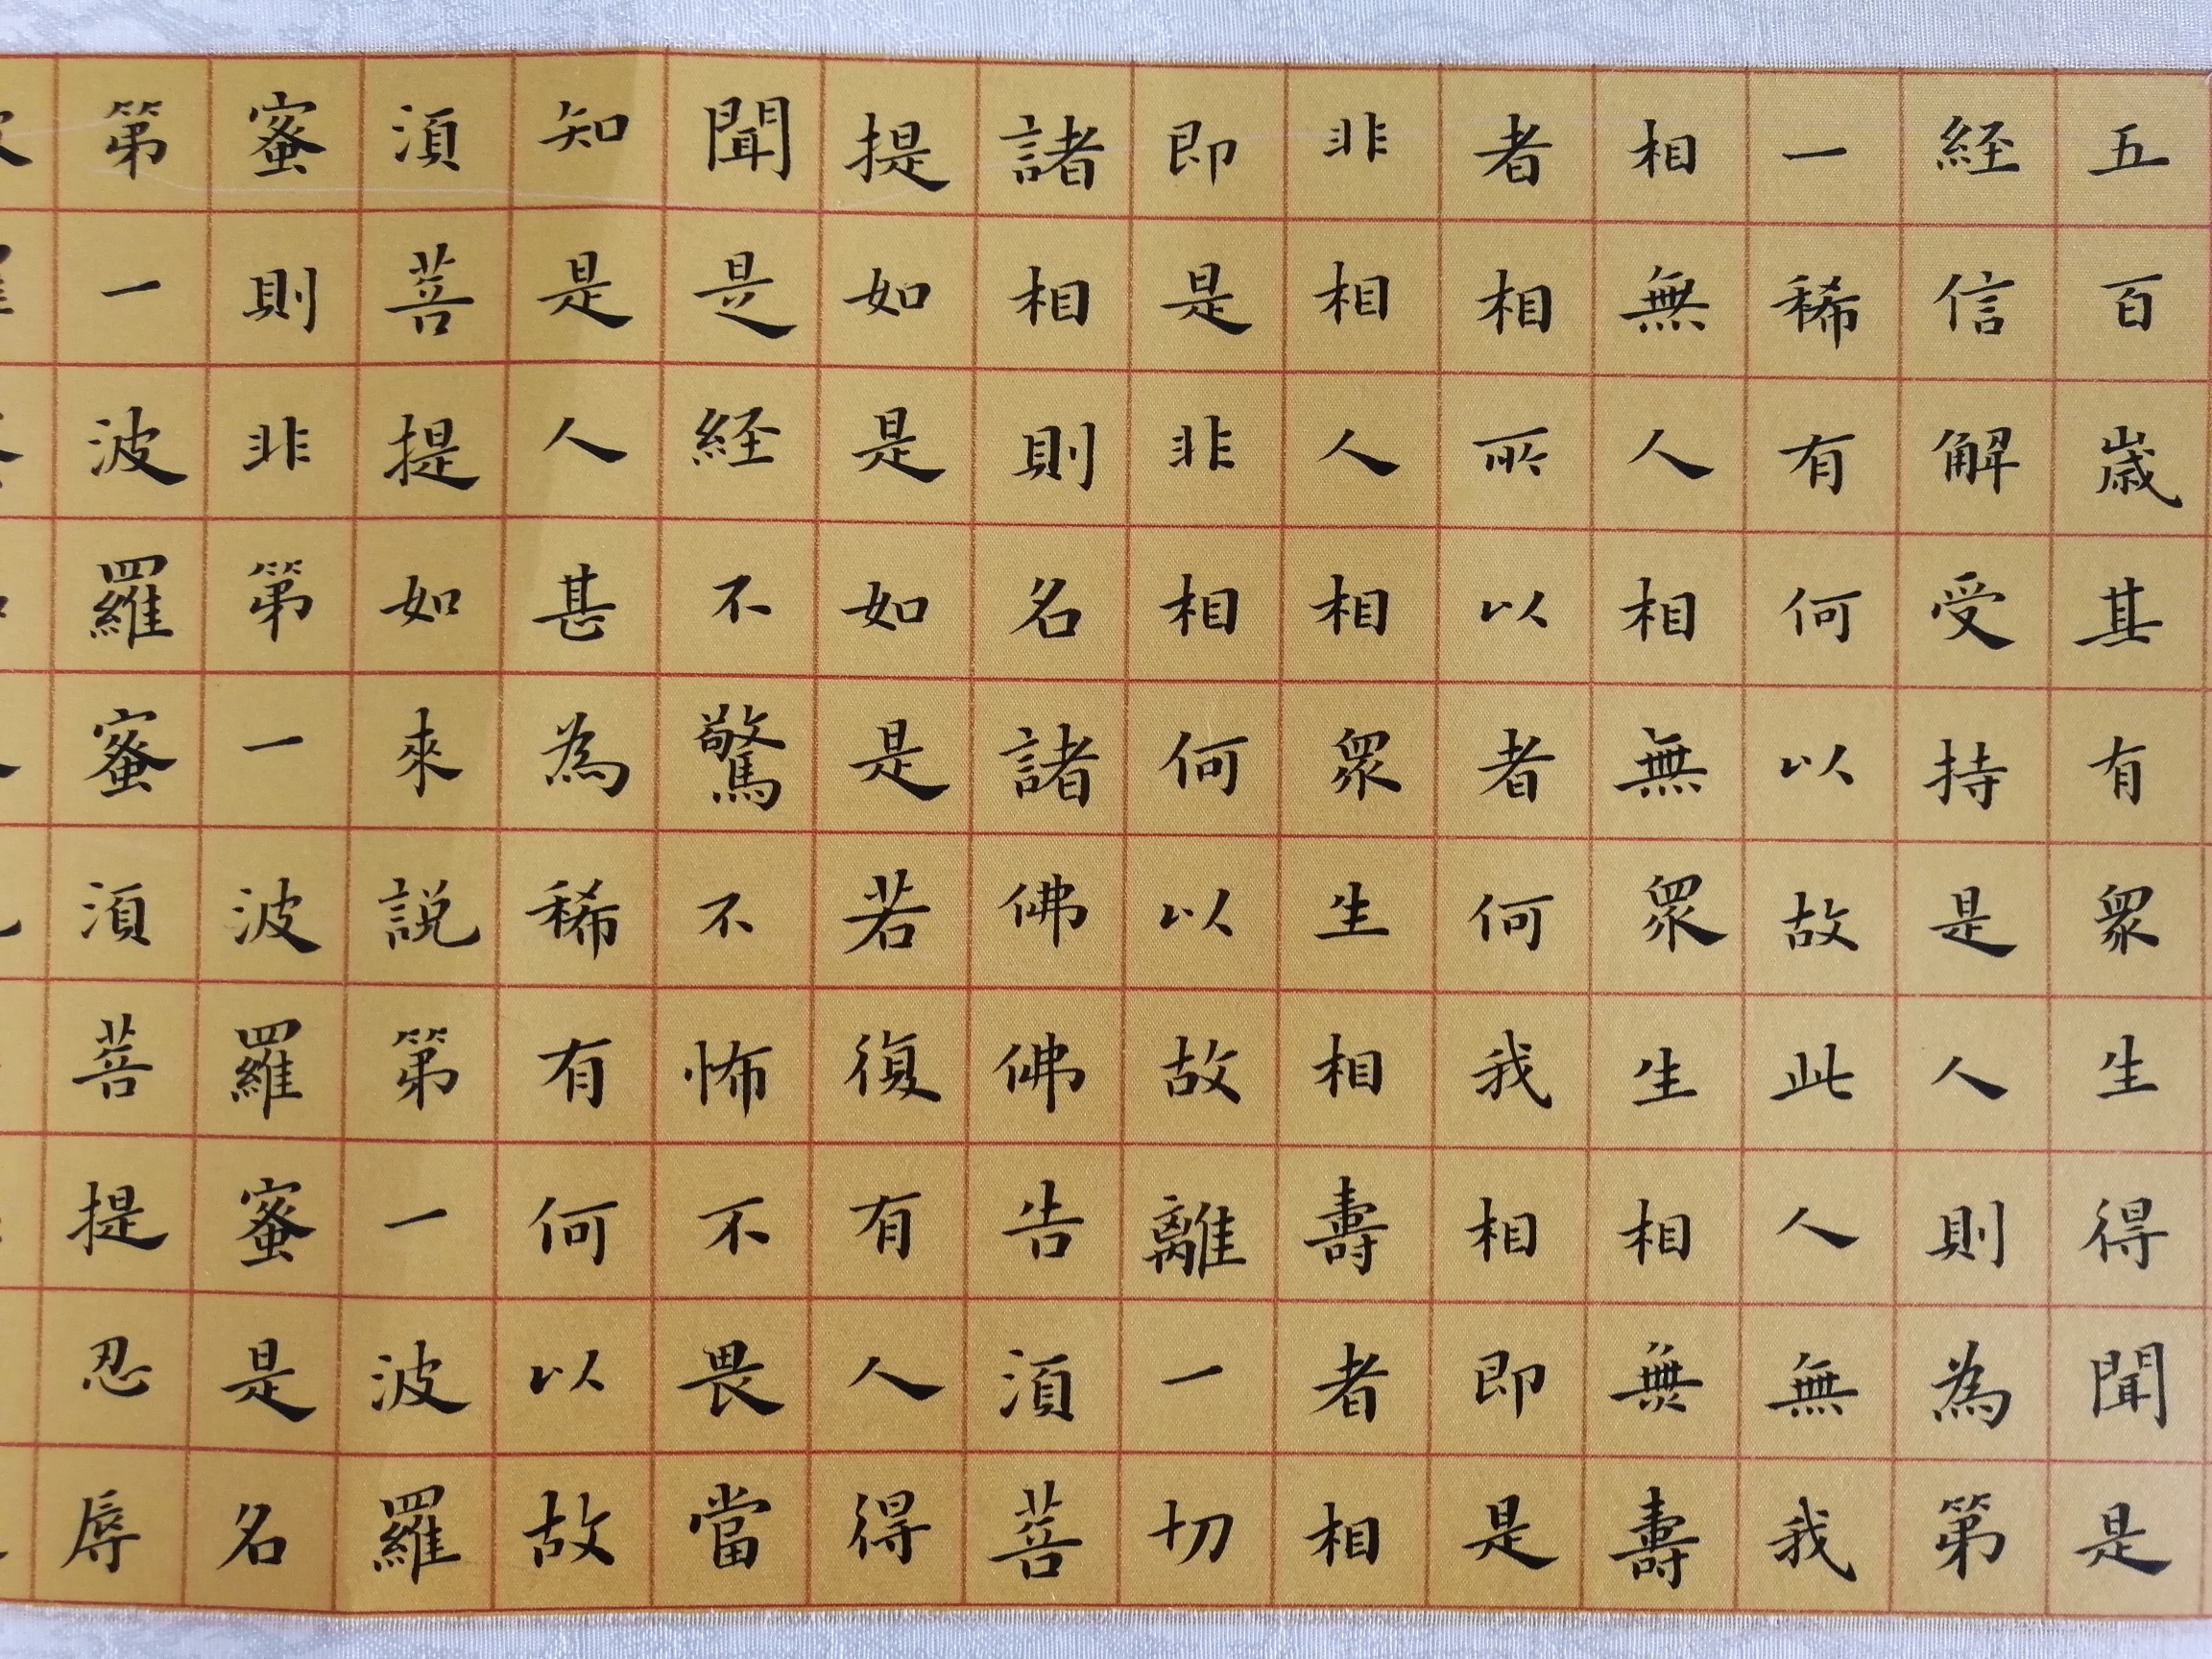 五百歳其有衆生得聞是
経信解受持是人則為第
一稀有何以故此人無我
相無人相無衆生相無壽
者相所以者何我相即是
非相人相衆生相壽者相
即是非相何以故離一切
諸相則名諸佛佛告須菩
提如是如是若復有人得
聞是経不驚不怖不畏當
知是人甚為稀有何以故
須菩提如來説第一波羅
蜜則非第一波羅蜜是名
第一波羅蜜須菩提忍辱